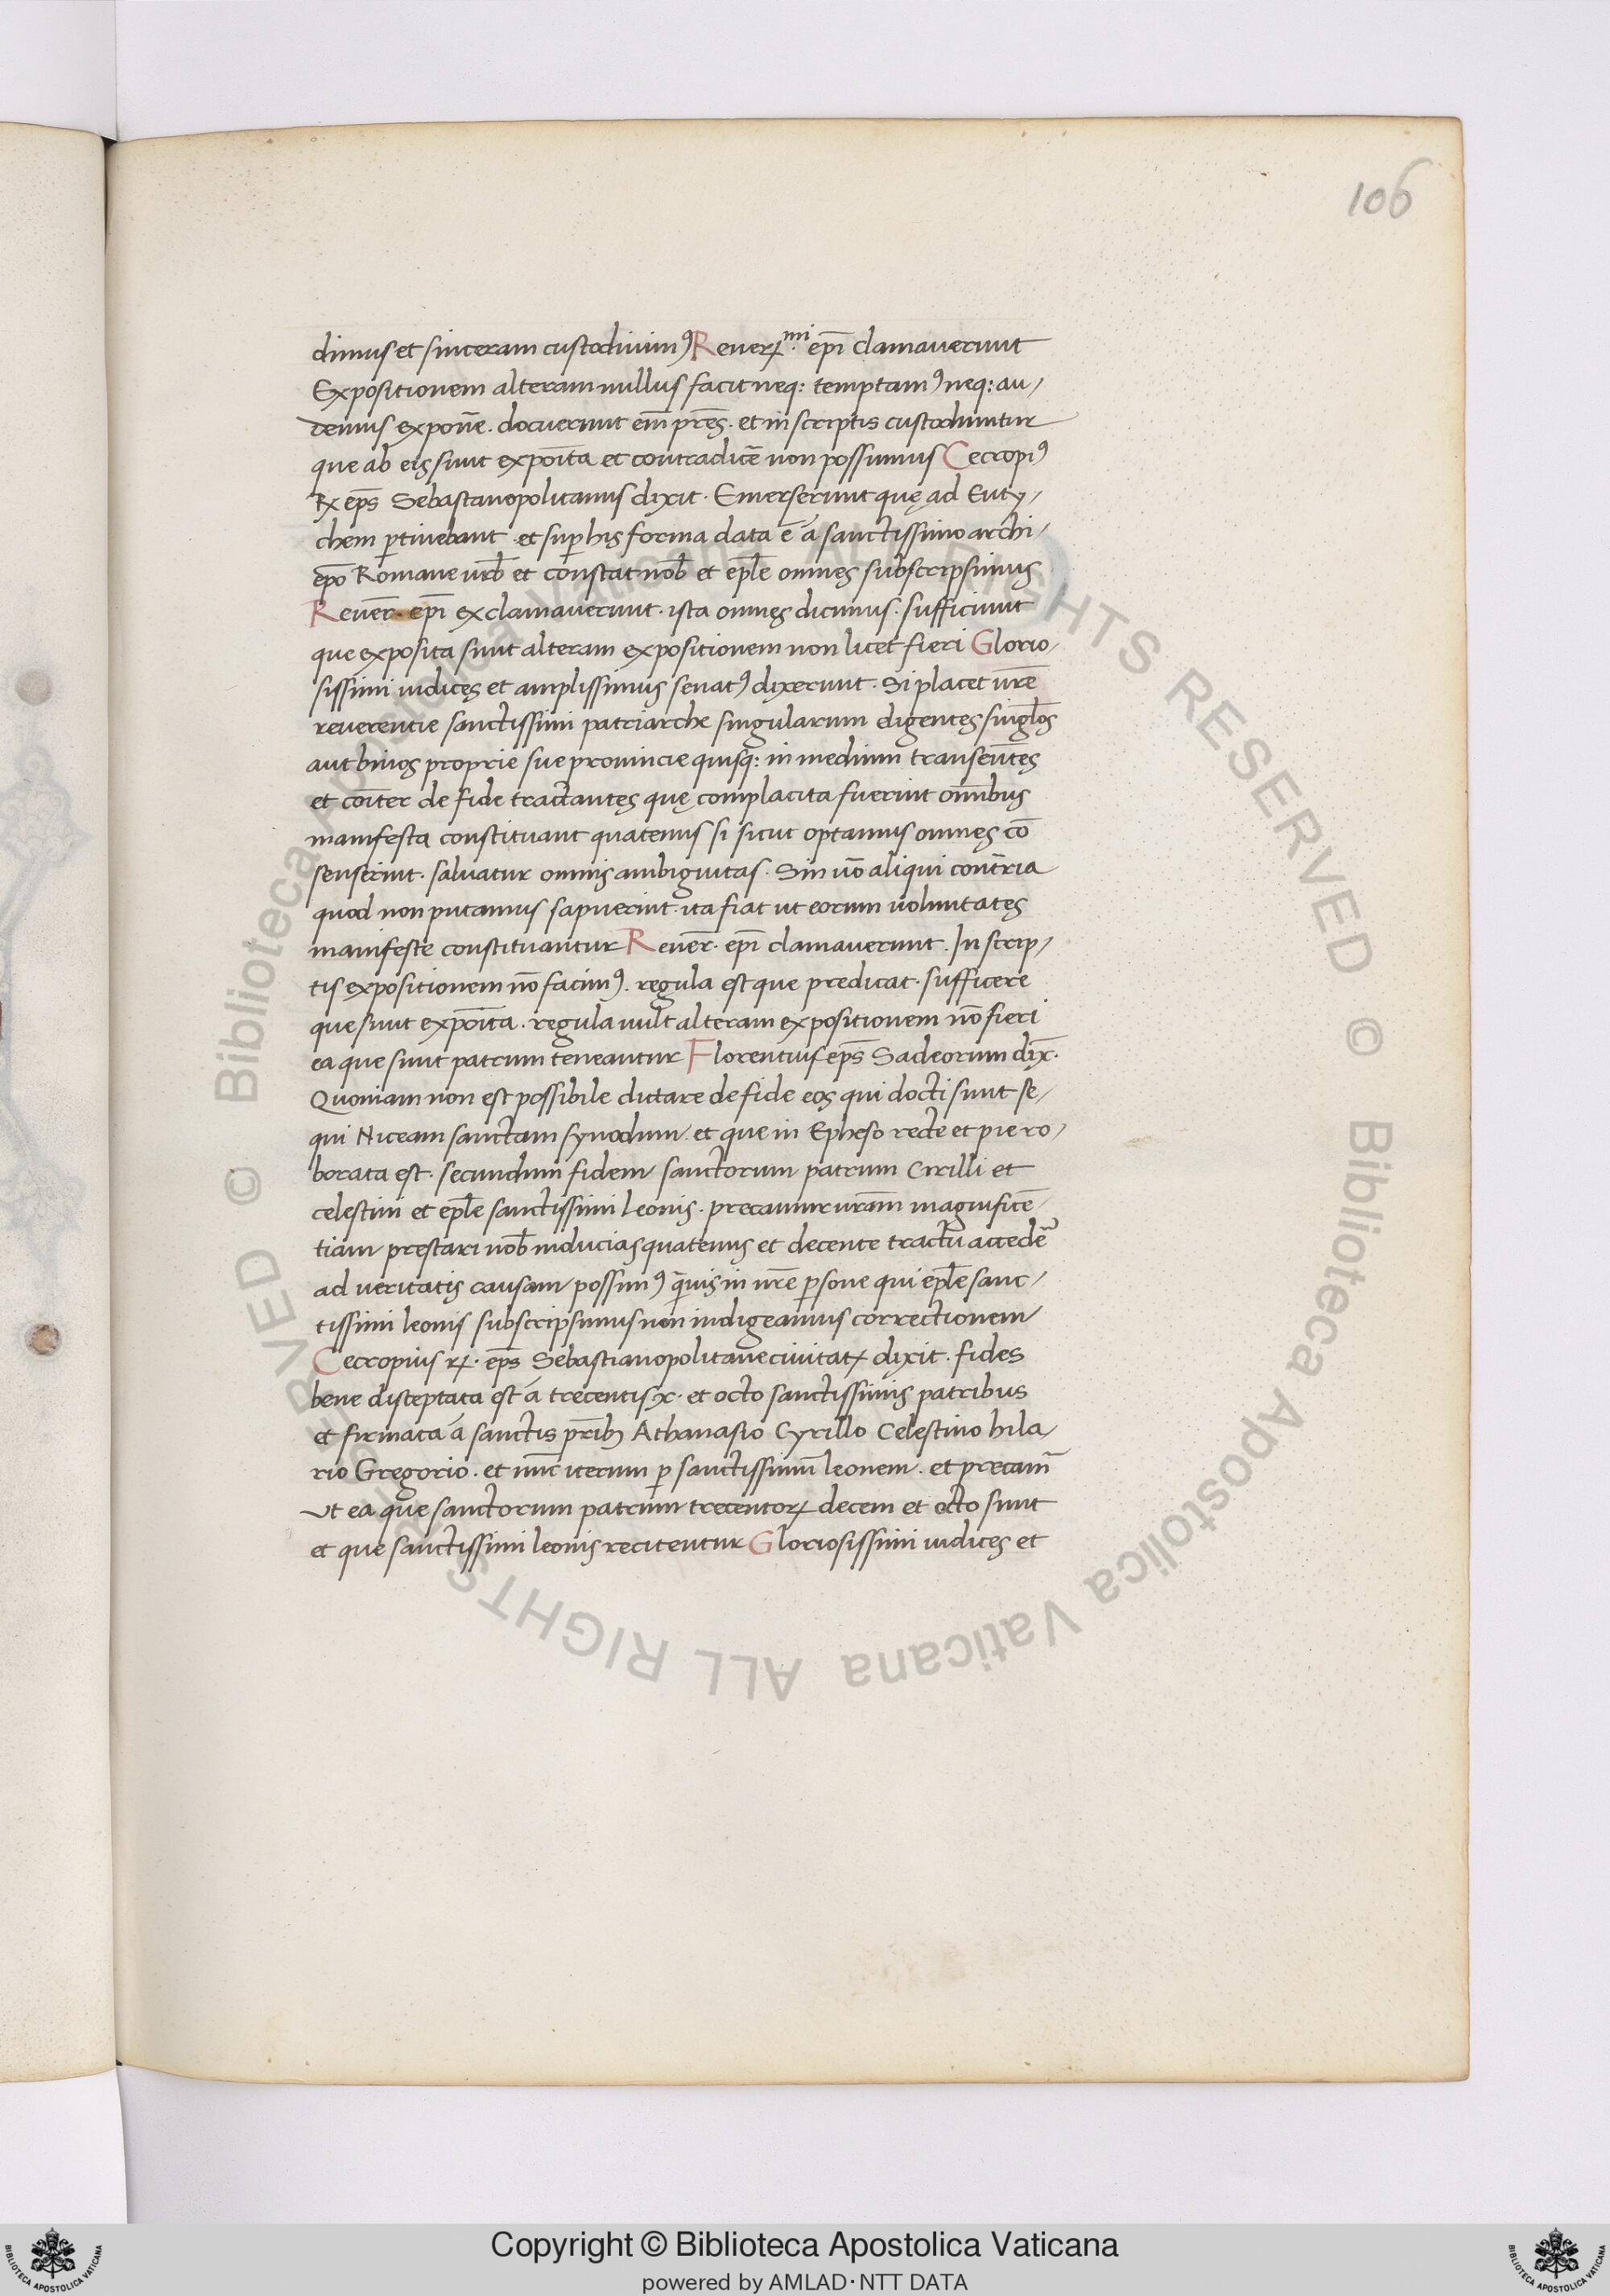 106
dimus et sinceram custodivimꝰ Reverꝝ.mi ep̄i clamaverunt
Expositionem alteram nullus facit neq: temptamꝰ neq: au/
demus expon̄e. docuerunt em̄ pr̄es. et in scriptis custodiuntur
que ab eis sunt expoīta et contradic̄e non possumus Cecropiꝰ
R̨ ep̄s Sebastanopolitanus dixit. Emerserunt quę ad Euty/
chem ꝑtinebant et suꝑ his forma data ē á sanctissimo archi/
ep̄o Romane urb̄ et constat nob̄ et ep̄le omnes subscripsimus
Reuer̄. ep̄i exclamaverunt. ista omnes dicimus. sufficiunt
que exposita sunt alteram expositionem non licet fieri Glorio/
sissimi iudices et amplissimus senatꝰ dixerunt. Si placet vr̄e
reverentie sanctissimi patriarche singularum digentes singl̄os
aut binos proprie sue provincie quisq: in medium transeūtes
et cōiter de fide tractantes quę complacita fuerint om̄ibus
manifesta constituant quatenus si sicut optamus omnes cō
senserint. salvatur omnis ambiguitas. Sin v̄o aliqui cont̄ria
quod non putamus sapuerint. ita fiat ut eorum voluntates
manifeste constituantur Rever̄. ep̄i clamaverunt. In scrip/
tis expositionem nō facimꝰ. regula est que predicat. sufficere
que sunt expoīta. regula vult alteram expositionem nō fieri
ea que sunt patrum teneantur Florentius ep̄s Sadeorum dix̄.
Quoniam non est possibile dictare de fide eos qui docti sunt se/
qui Niceam sanctam synodum. et que in Epheso recte et pie ro/
borata est. secundum fidem sanctorum patrum Cirilli et
celestini et ep̄le sanctissimi Leonis. precamur vr̄am magnificē/
tiam prestari nob̄ inducias quatenus et decente tractu acced̄e
ad veritatis causam possimꝰ q̄vis in nr̄e ꝑsone qui ep̄le sanc/
tissimi leonis subscripsimus non indigeamus correctionem
Cecropius rꝝ. ep̄s Sebastianopolitane civitatꝝ dixit. fides
bene disceptata est á trecentis x. et octo sanctissimis patribus
et firmata á sanctis pr̄ibꝫ Athanasio Cyrillo Celestino hila/
rio Gregorio. et nūc iterum ꝑ sanctissimū leonem. et precam̄
ut ea que sanctorum patrum trecentoꝝ decem et octo sunt
et que sanctissimi leonis recitentur Gloriosissimi iudices et
© Biblioteca Apostolica Vaticana ALL RIGHTS RESERVED © Biblioteca Apostolica Vaticana ALL RIGHTS RESERVED
Copyright © Biblioteca Apostolica Vaticana
powered by AMLAD·NTT DATA
BIBLIOTECA APOSTOLICA VATICANA
BIBLIOTECA APOSTOLICA VATICANA